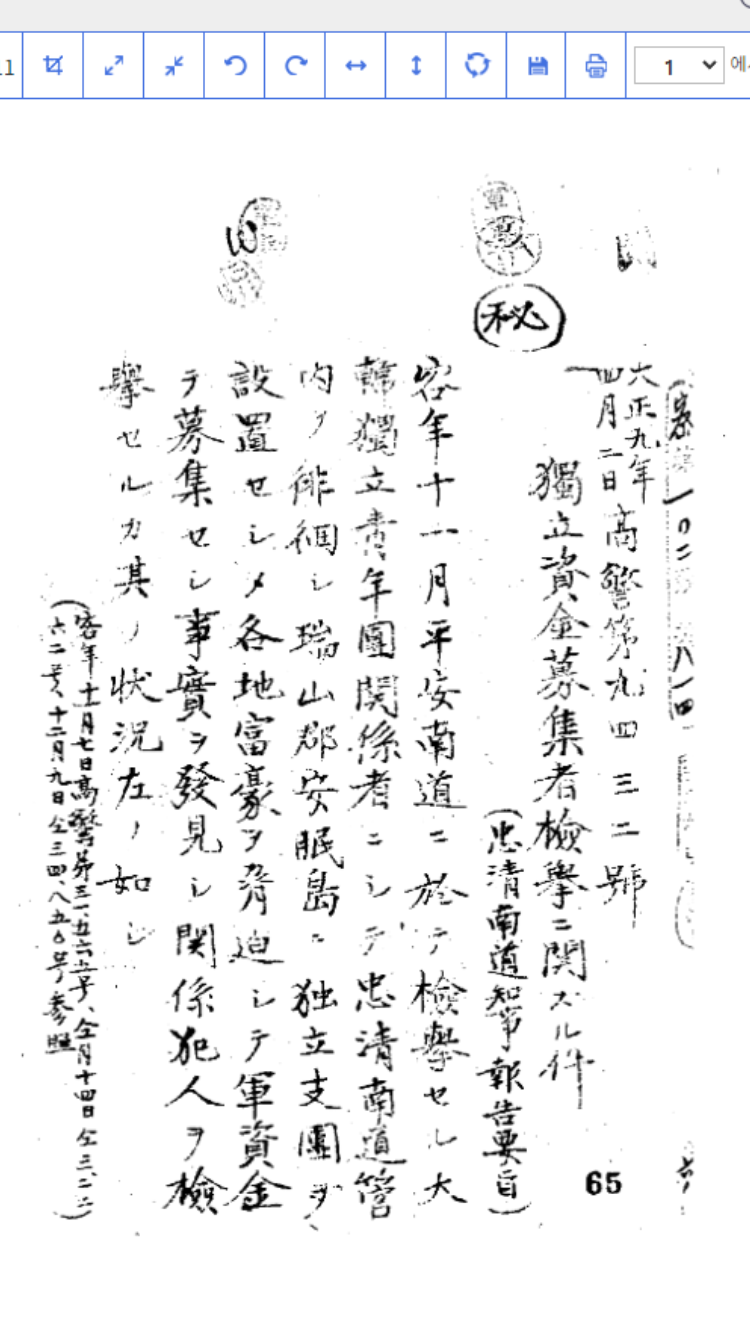 11
1
에
秘
大正九年
四月二日
高警第九四三二號
獨立資金募集者檢擧ニ関スル件
(忠清南道知事報告要旨)
客年十一月平安南道ニ於テ檢擧セル大
韓獨立青年團関係者ニシテ忠清南道管
内ヲ徘徊シ瑞山郡安眠島ニ独立支團ヲ
設置セシメ各地富豪ヲ脅迫シテ軍資金
ヲ募集セシ事實ヲ發見シ関係犯人ヲ檢
擧セルカ其ノ状況左ノ如シ
(客年十一月七日高警第三一、五六五号、仝月十四日仝三、二二
六二号、十二月九日仝三四、八五〇号参照)
65